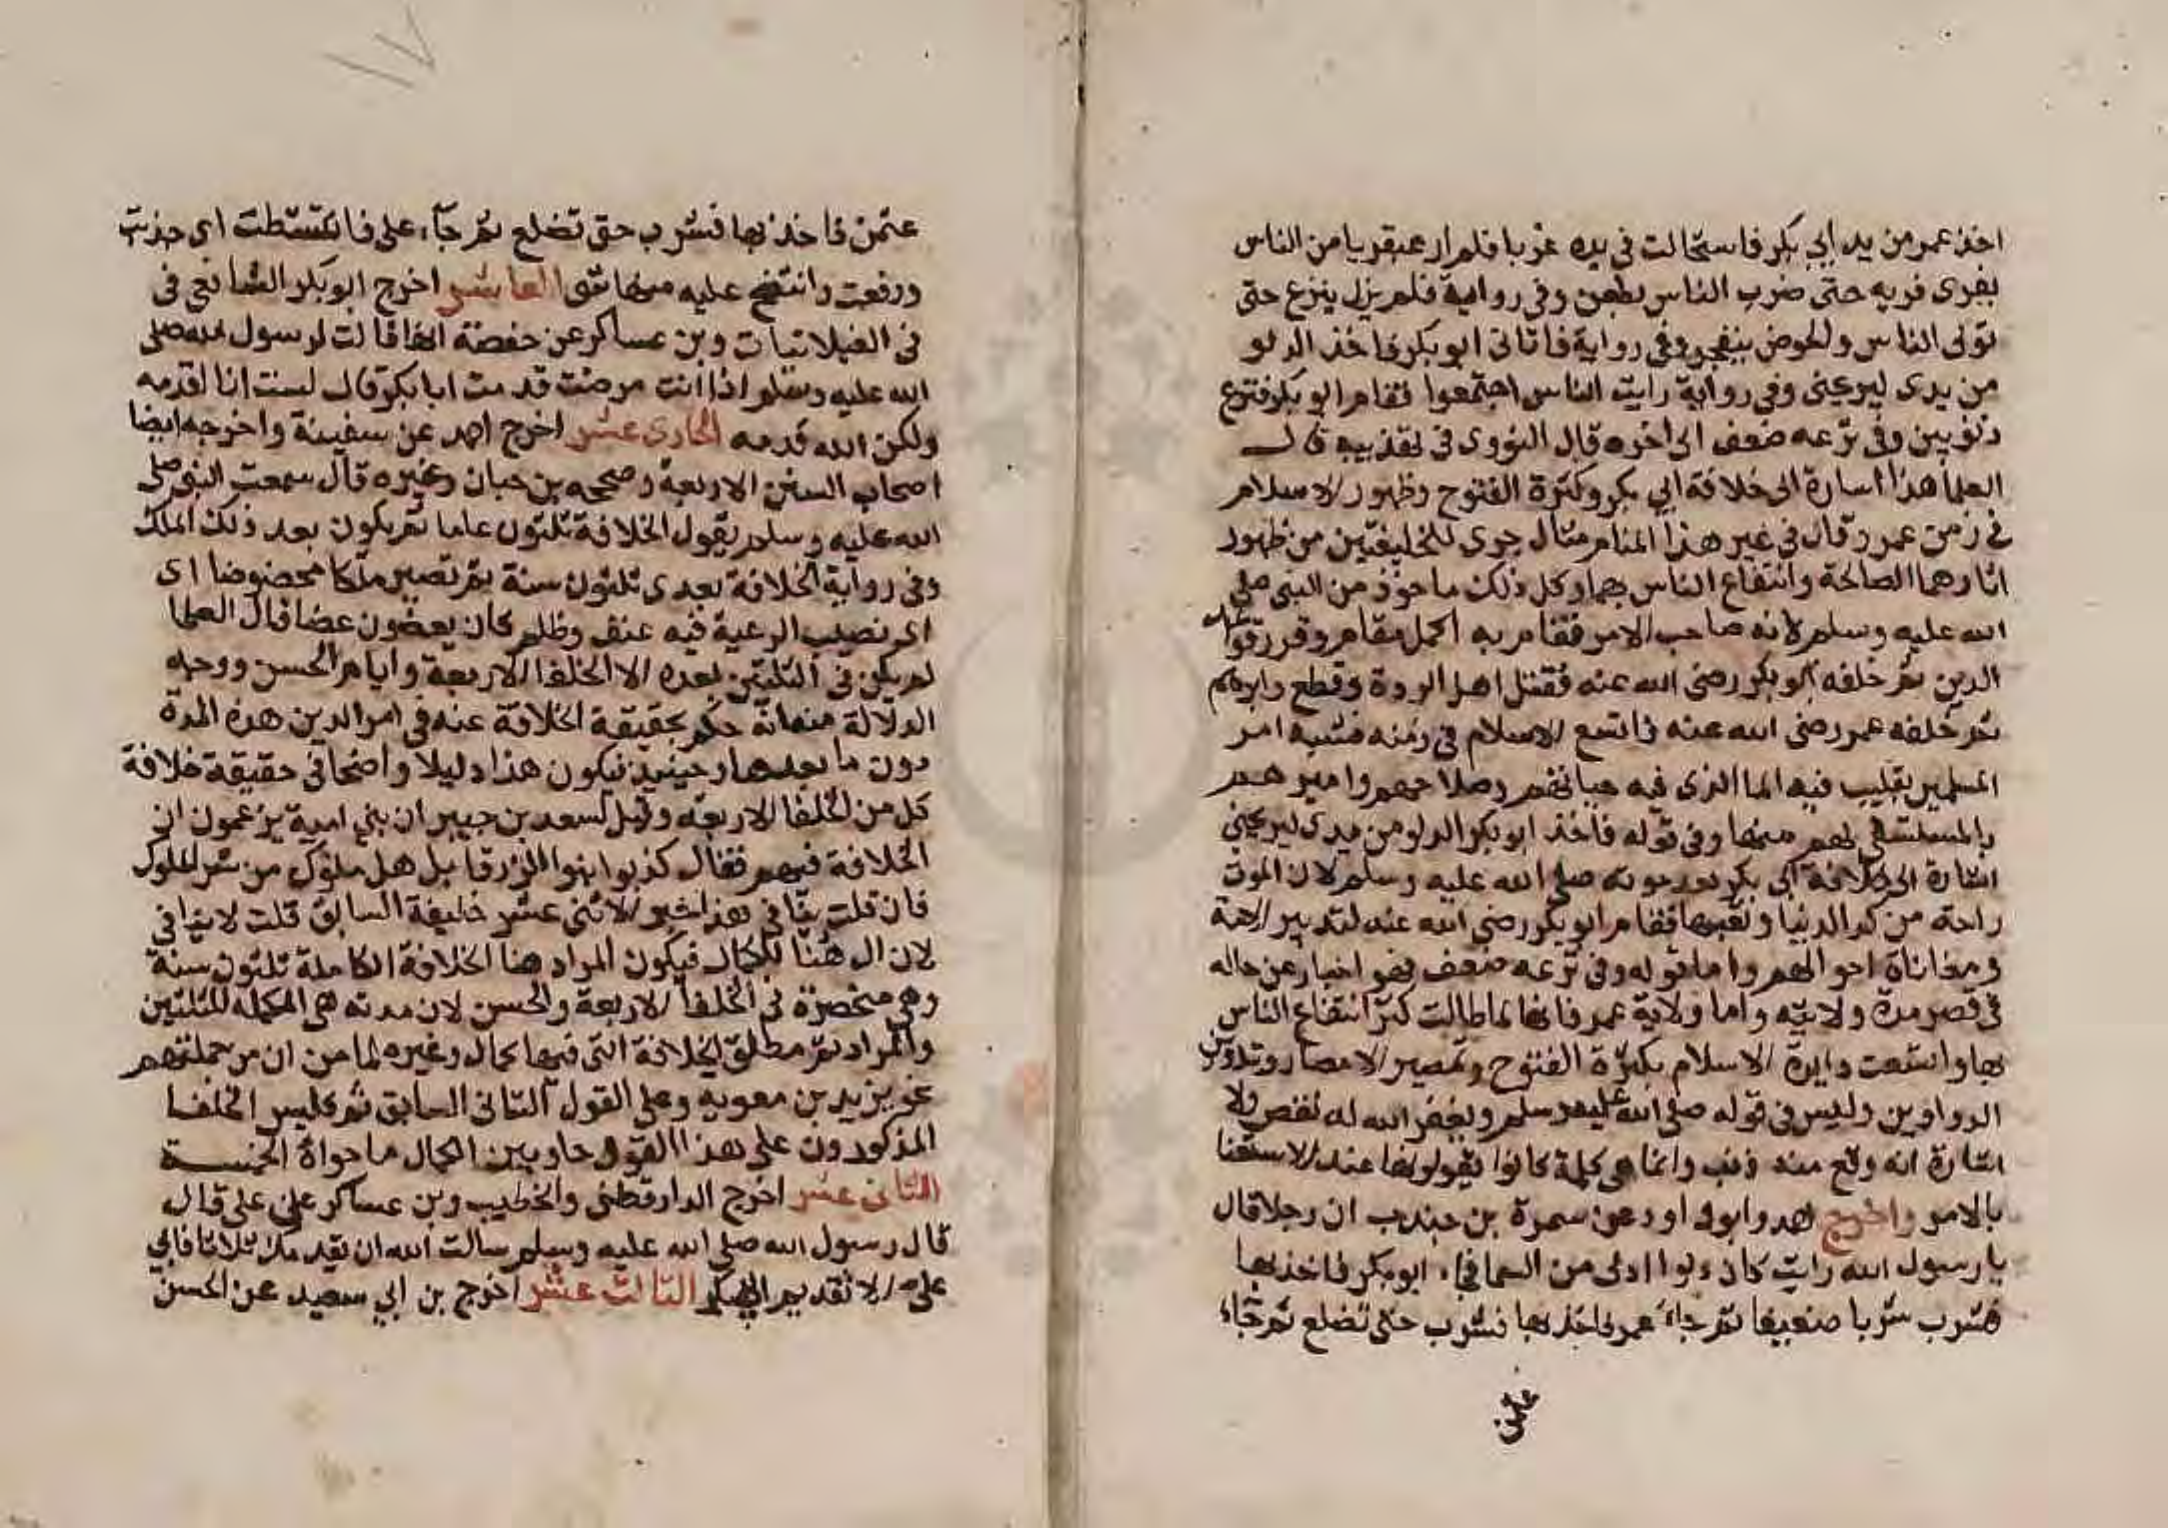 اخذ عمر من يد ابي بكر فاستحالت في يده غربا فلم ار عبقريا من الناس
يفرى فريه حتى ضرب الناس بطعن وفي رواية فلم يزل ينزع حتى
تولى الناس والحوض يتفجر وفي رواية فاتاني ابو بكر فاخذ الدلو
من يدى ليريحنى وفي رواية رايت الناس اجتمعوا فقام ابو بكر فنزع
ذنوبين وفي نزعه ضعف الى اخره قال النووى في تهذيبه قال
العلما هذا اشارة الى خلافة ابي بكر وكثرة الفتوح وظهور الاسلام
في زمن عمر وقال في غير هذا المنام مثال جرى للخليفتين من ظهور
اثارهما الصالحة وانتفاع الناس بهما وكل ذلك ماخوذ من النبي صلي
الله عليه وسلم لانه صاحب الامر فقام به اكمل مقام وقرر قواعد
الدين ثم خلفه ابو بكر رضى الله عنه فقتل اهل الردة وقطع دابرهم
ثم خلفه عمر رضى الله عنه فاتسع الاسلام في زمنه فشبه امر
المسلمين بقليب فيه الما الذى فيه حياتهم وصلاحهم واميرهم
بالمستقي لهم منها وفي قوله فاخذ ابو بكر الدلو من يدى ليريحني
اشارة الى خلافة ابي بكر بعد موته صلي الله عليه وسلم لان الموت
راحة من كد الدنيا وتعبها فقام ابو بكر رضي الله عنه لتدبير الامة
ومعاناة احوالهم واما قوله وفي نزعه ضعف فهو اخبار عن حاله
في قصر مدة ولايته واما ولاية عمر فانها لما طالت كثر انتفاع الناس
بها واتسعت دايرة الاسلام بكثرة الفتوح وتمصير الامصار وتدوين
الدواوين وليس في قوله صلي الله عليه وسلم ويغفر الله له نقص ولا
اشارة انه وقع منه ذنب وانما هي كلمة كانوا يقولونها عند الاستغنا
بالامر واخرج احمد وابو داود عن سمرة بن جندب ان رجلا قال
يا رسول الله رايت كان دلوا ادلى من السما فجاء ابو بكر فاخذ بها
فشرب شربا ضعيفا ثم جاء عمر فاخذ بها فشرب حتى تضلع ثم جاء
عثمن
١٧
عثمن فاخذ بها فشرب حتى تضلع ثم جاء على فانتشطت اى جذبت
ورفعت وانتضح عليه منها شى العاشر اخرج ابو بكر الشافعي في
في الغيلانيات وبن عساكر عن حفصة انها قالت لرسول الله صلى
الله عليه وسلم اذا انت مرضت قدمت ابا بكر قال لست انا اقدمه
ولكن الله قدمه الحادى عشر اخرج احمد عن سفينة واخرجه ايضا
اصحاب السنن الاربعة وصححه بن حبان وغيره قال سمعت النبي صلى
الله عليه وسلم يقول الخلافة ثلثون عاما ثم يكون بعد ذلك الملك
وفي رواية الخلافة بعدى ثلثون سنة ثم تصير ملكا عضوضا اى
اى تصيب الرعية فيه عنف وظلم كان يعضون عضا قال العلما
لم يكن في الثلثين بعده الا الخلفا الاربعة وايام الحسن ووجه
الدلالة منه انه حكم بحقيقة الخلافة عنه في امر الدين هذه المدة
دون ما بعدها وحينيذ فيكون هذا دليلا واضحا في حقيقة خلافة
كل من الخلفا الاربعة وقيل لسعد بن جبير ان بني امية يزعمون ان
الخلافة فيهم فقال كذبوا بنوا الزرقا بل هل ملوك من شر الملوك
فان قلت ينافي هذا خبر الاثنى عشر خليفة السابق قلت لا ينافي
لان ال هنا للكمال فيكون المراد هنا الخلافة الكاملة ثلثون سنة
وهي منحصرة في الخلفا الاربعة والحسن لان مدته هي المكمله للثلثين
والمراد ثم مطلق الخلافة التى فيها كمال وغيره لما من ان من جملتهم
نحو يزيد بن معويه وعلى القول الثانى السابق ثم فليس الخلفا
المذكورون على هذا القول حاويين الكمال ما حواه الخمسة
الثانى عشر اخرج الدارقطنى والخطيب وبن عساكر عن على قال
قال رسول الله صلي الله عليه وسلم سالت الله ان يقدمك ثلاثا فابي
على الا تقديم ابي بكر الثالث عشر اخرج بن ابي سعيد عن الحسن